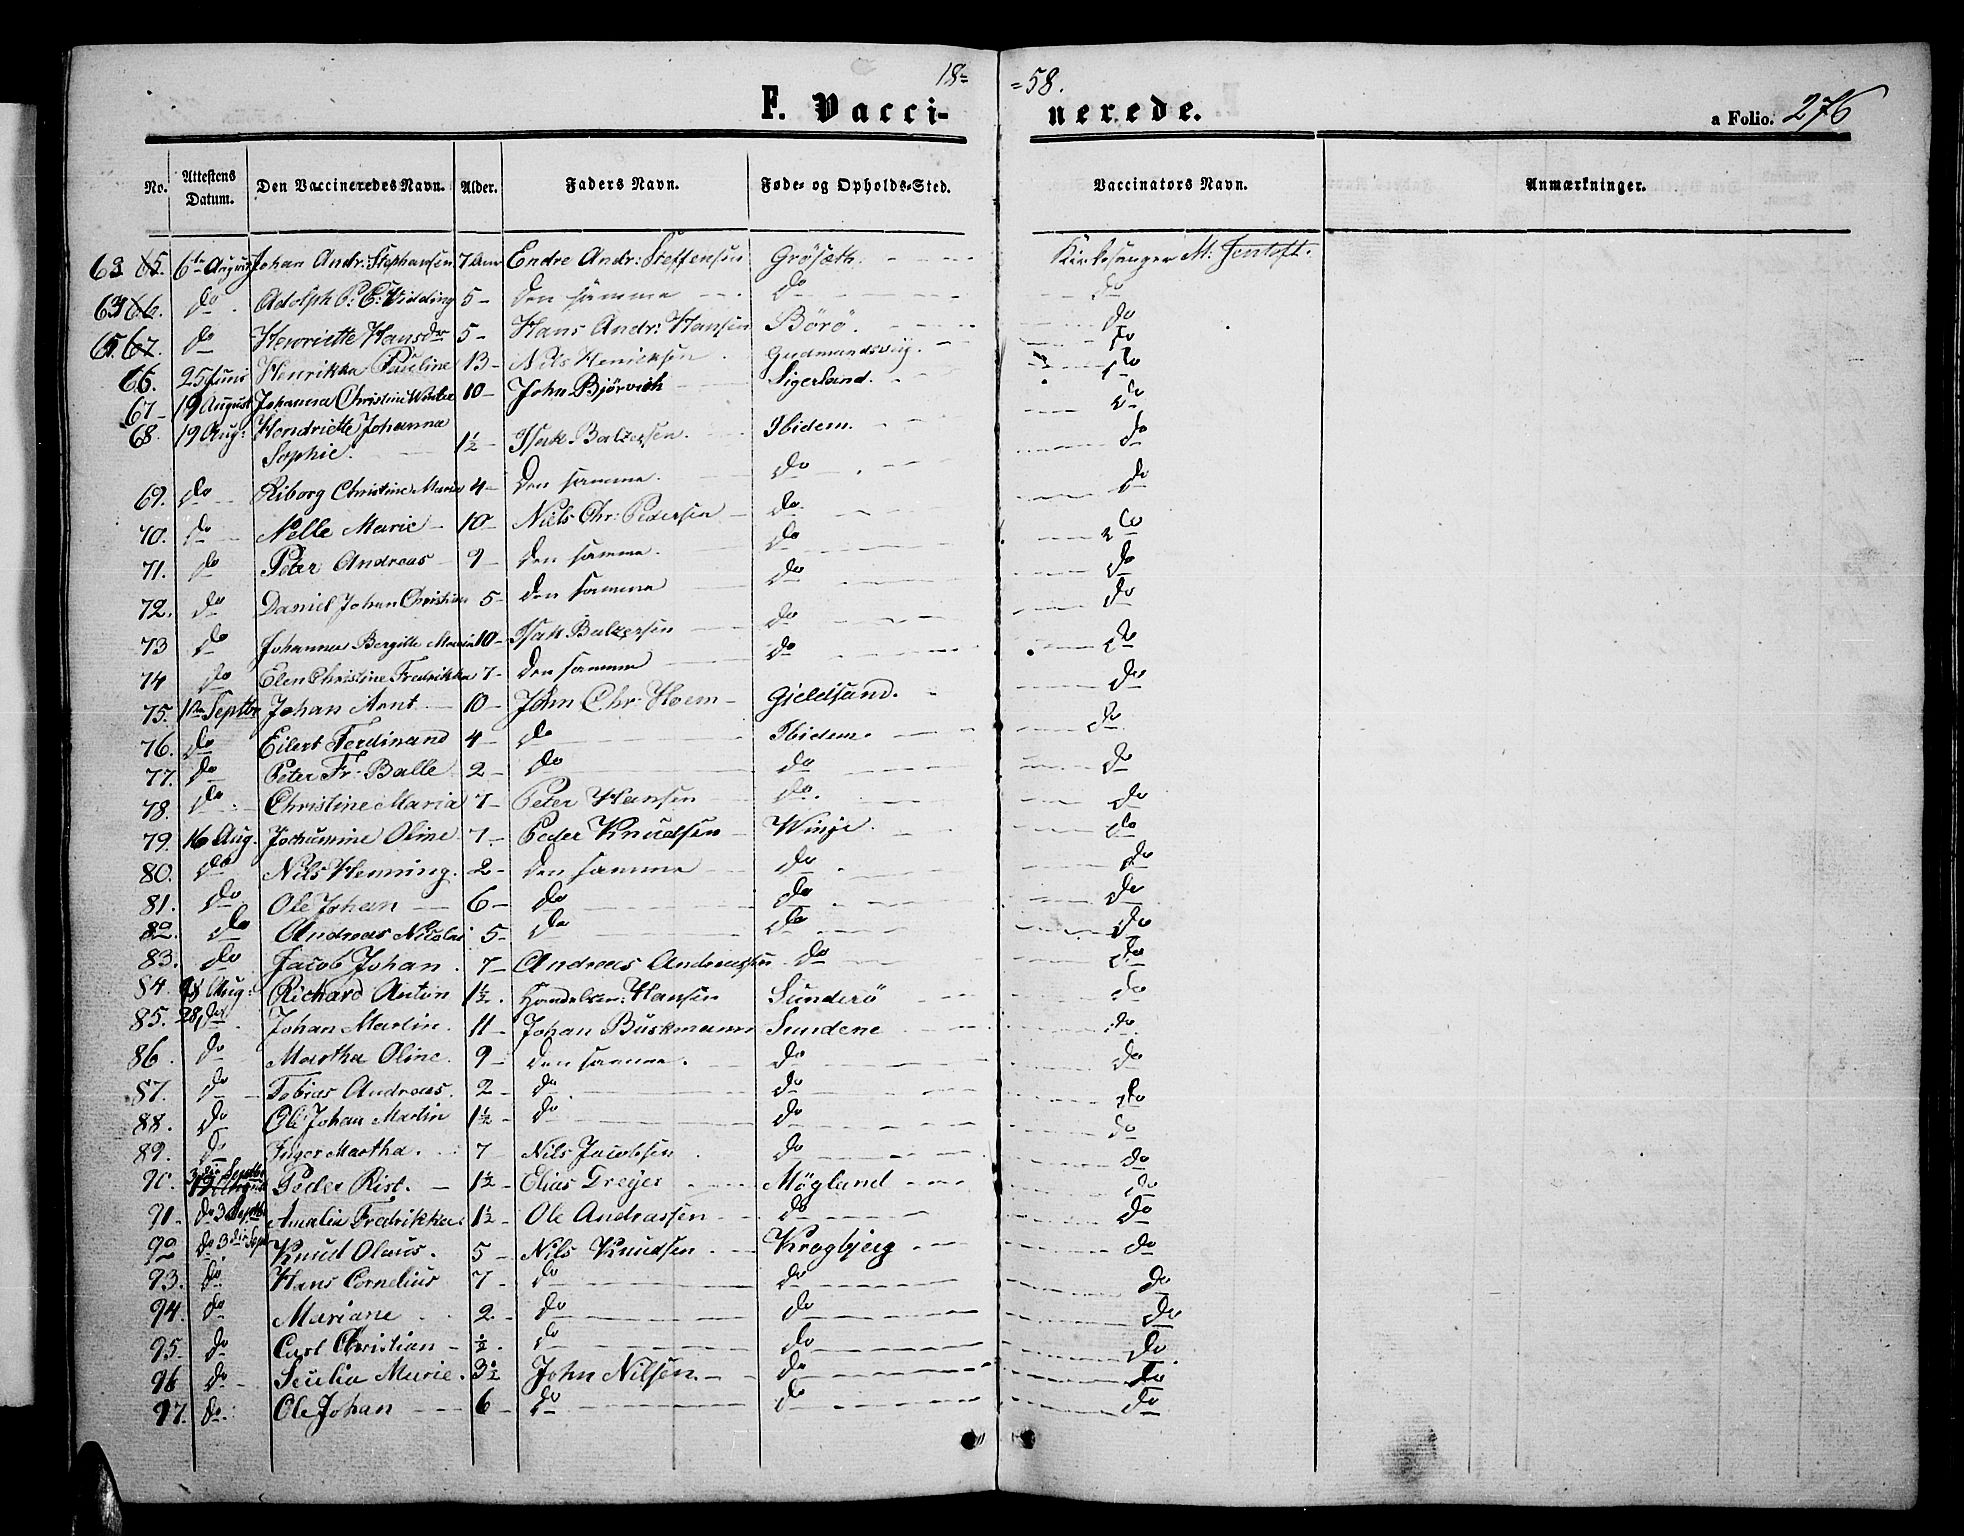 18= =58.
F. Vacci- nerede. a Folio. 276
No. Attestens Datum. Den Vaccineredes Navn. Alder. Faders Navn. Føde- og Opholds-Sted. Vaccinators Navn. Anmærkninger.
63 65. 6te August Johan Andr: Stephansen 7 Endre Andr: Steffensen Grösæth. Kirkesanger M. Jentoft.
64 66. do Adolph P. E. 5 - Den samme do do
65. 67 do Henriette Hansdr 5 - Hans Andr: Hansen Börö. do
66. 25 Juni Henrikka Pauline 13 - Nils Henriksen Gudmandsvig. do
67 - 19 August Johanna Christine 10 - John Björvich Sigerland. do
68. 19 Aug: Hendriette Johanna
Sophie. 1½ - Isak Balzersen. Ibidem. do
69. do Riborg Christine Maria 4 - Den samme. do do
70. do Nelle Marie 10 - Niels Chr: Pedersen do do
71. do Peter Andreas 9 - Den samme. do do
72. do Daniel Johan Christian 5 - Den samme do do
73 do Johanna Bergitte Maria 10 - Isak Balzersen do do
74 do Elen Christine Fredrikka 7 - Den samme do do
75. 1ste Septbr Johan Arnt 10 - John Chr: Hoem Gjeldsund. do
76. do Eilert Ferdinand 4 - do Ibidem do
77. do Peter Fr: Balle 2 - do do do
78. do Christine Maria 7 - Peter Hansen do. do
79. 16 Aug. Jochumine Oline 7 - Peder Knudsen Winje. do
80. do Nils Henning. 2 - Den samme do do
81. do Ole Johan 6 - do do do
82. do Andreas Nicolai 5 - do do do
83. do Jacob Johan 7 - Andreas Andreassen do do
84. Aug: Richard Anton 1½. Handelsm: Hansen Sunderö do
85. 28 do Johan Martin. 11 - Johan Buskmann Sundene do
86. do Martha Oline. 9 - Den samme. do do
87. do Tobias Andreas. 2 - do do do
88. do Ole Johan Martin 1½ - do do do
89. do Inger Martha. 7 - Nils Jacobsen do do
90. 3die Septbr Peder Rist. 1½ - Elias Dreyer Møgland do
91. do 3 Septb Amalia Fredrikka. 1½ - Ole Andrassen do do
92 do 3die Sept Knud Olaus. 5 - Nils Knudsen Kragbjerg do
93. do Hans Cornelius 7 - do do do
94. do Mariane 2. do do do
95. do Carl Christian ½. do do do
96 do Marie. 3½ John Nilsen. do do
97. do. Ole Johan 6 - do do do